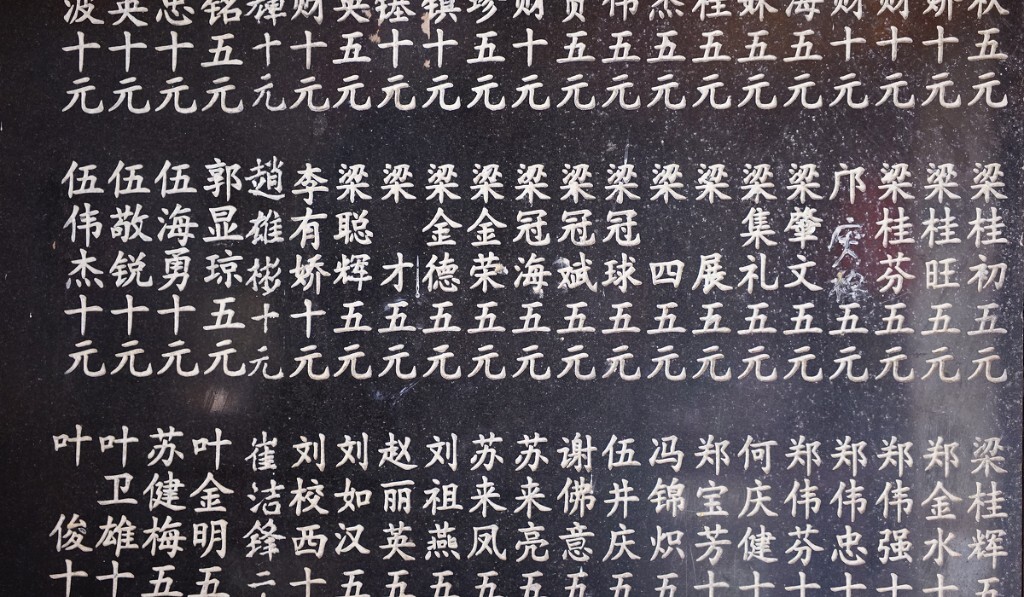 秋五元
娇十元
财十元
财十元
海五元
妹五元
桂五元
杰五元
伟五元
五元
财十元
珍五元
镇十元
十元
英五元
财十元
十元
铭五元
忠十元
英十元
波十元
梁桂初五元
梁桂旺五元
梁桂芬五元
邝庆五元
梁肇文五元
梁集礼五元
梁展五元
梁四五元
梁冠球五元
梁冠斌五元
梁冠海五元
梁金荣五元
梁金德五元
梁才五元
梁聪辉五元
李有娇十元
趙雄彬十元
郭显琼五元
伍海勇十元
伍敬锐十元
伍伟杰十元
梁桂辉五
郑金水十
郑伟强十
郑伟忠十
郑伟芬十
何庆健十
郑宝芳十
冯锦炽五
伍井庆五
谢佛意五
苏来亮五
苏来凤五
刘祖燕五
赵丽英五
刘如汉五
刘校西十
崔洁锋二
叶金明五
苏健梅五
叶卫雄十
叶俊十